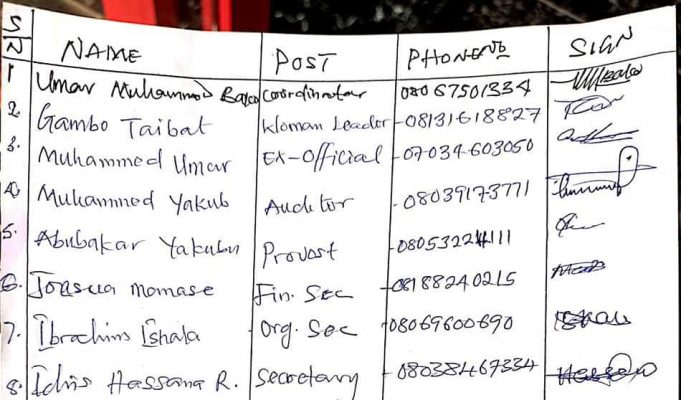 S/N NAME POST PHONE NO SIGN
1 Umar Muhammod coordinator 08067501334
2. Gambo Taibat Woman Leader 08131618827
3. Muhammed Umar Ex-Official 07034603050
4. Muhammed Yakub Auditor 08039173771
5. Abubakar Yakubu Provost 08053224111
6. Joasua mamase Fin. Sec 08188240215
7. Ibrahim Ishala Org. Sec 08069600690
8. Idris Hassana R. Secretary 08038467334